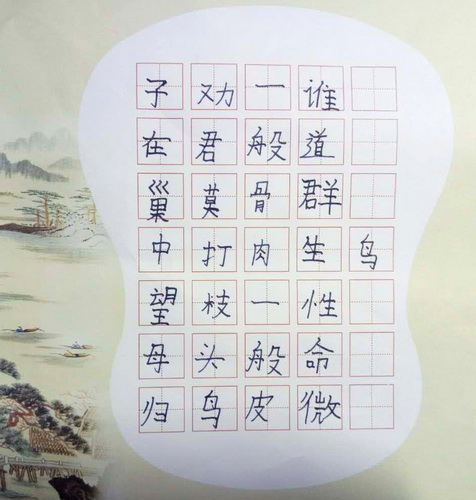 鸟
谁道群生性命微
一般骨肉一般皮
劝君莫打枝头鸟
子在巢中望母归